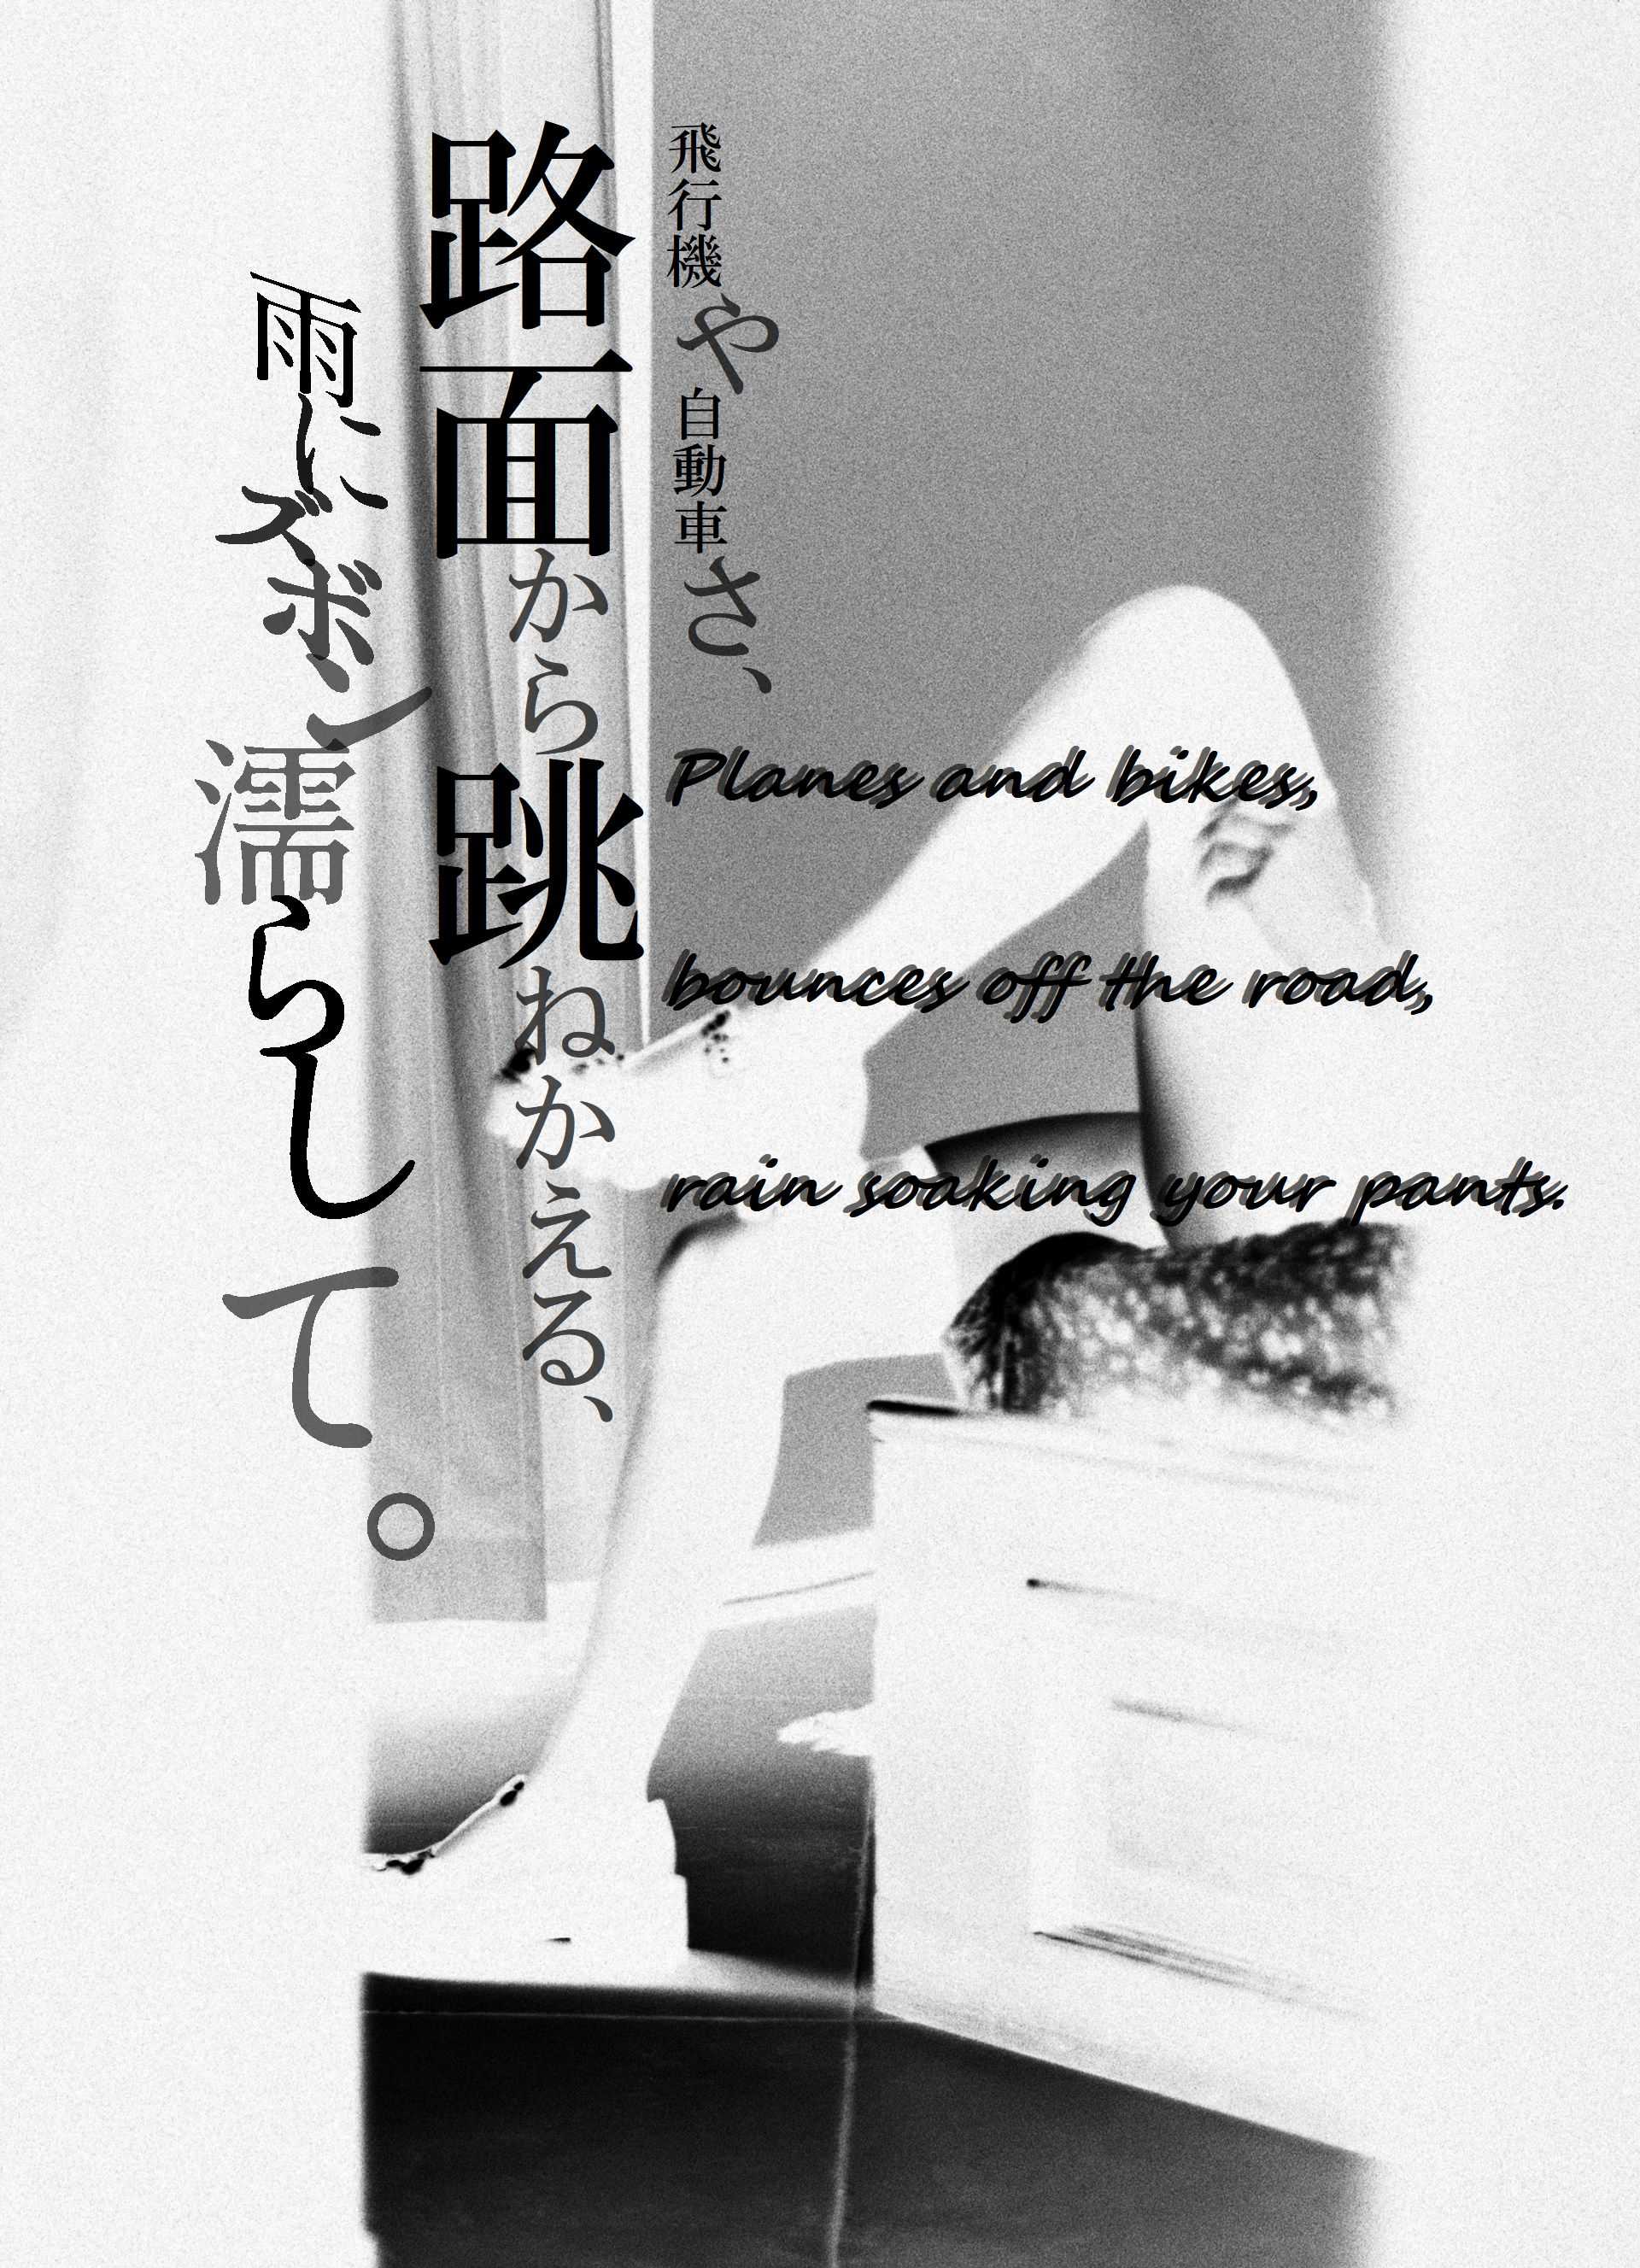 飛行機や自動車さ、
路面から跳ねかえる、
雨にズボン濡らして。
Planes and bikes,
bounces off the road,
rain soaking your pants.